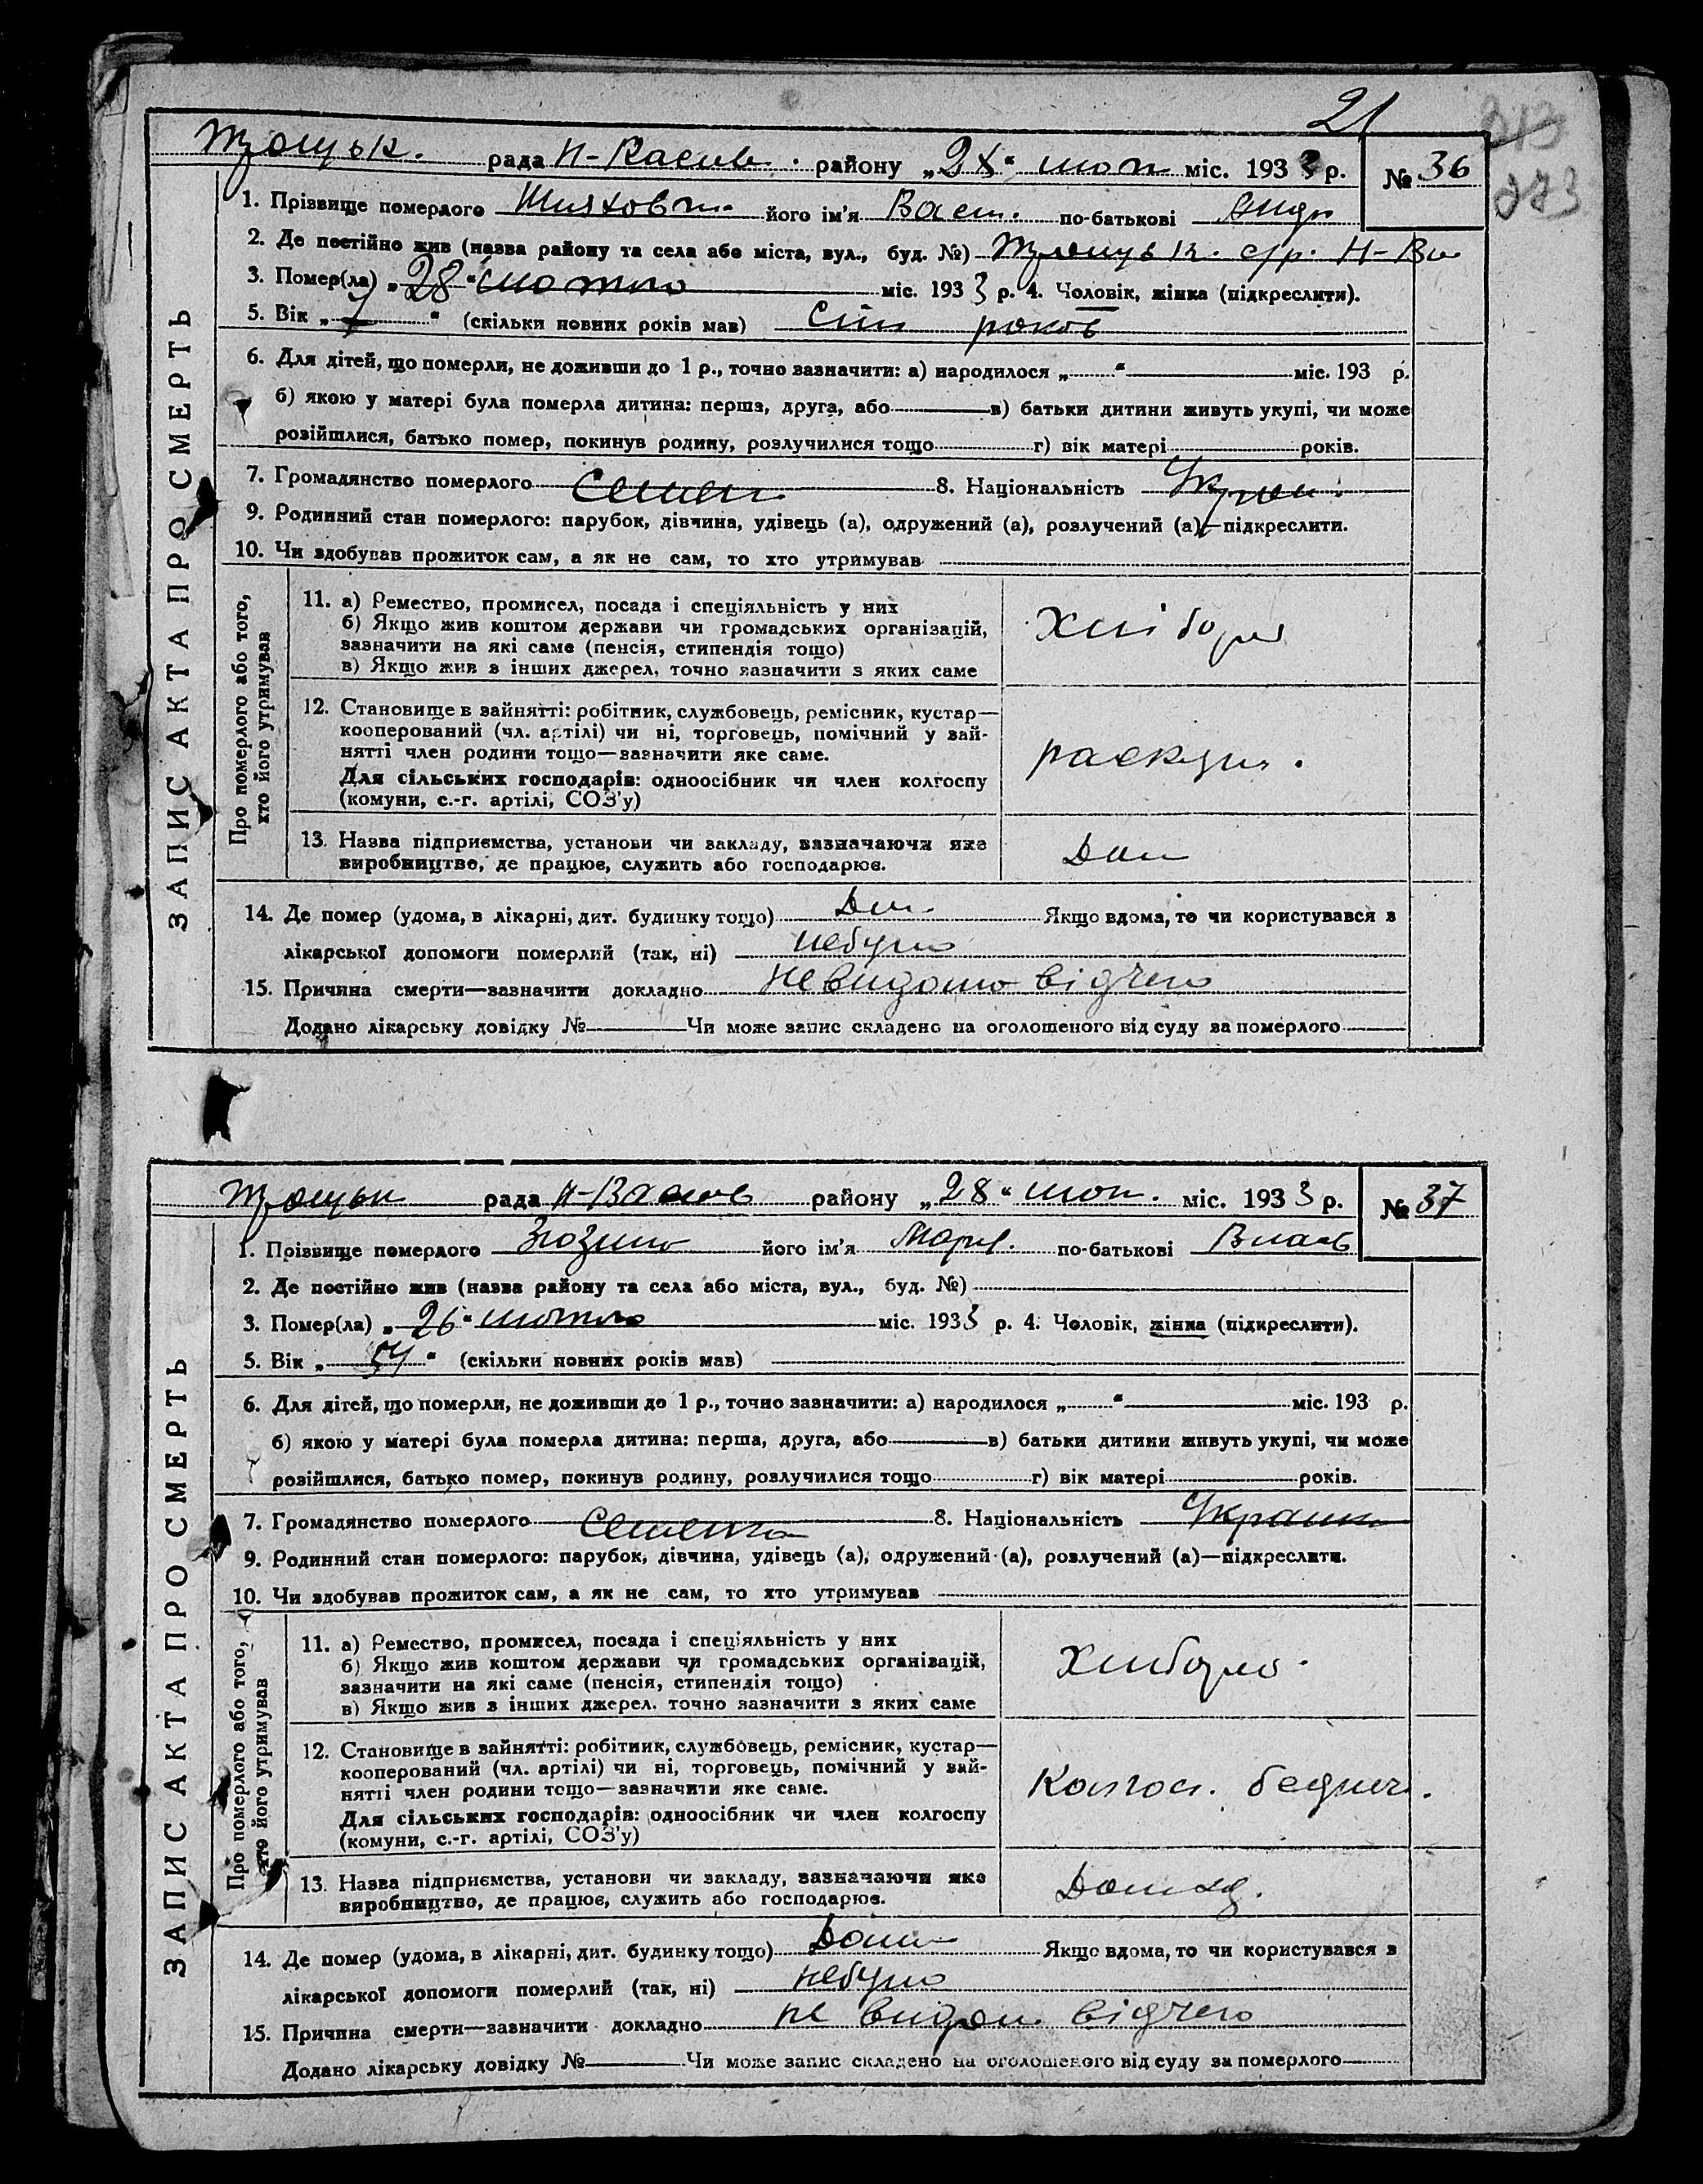 21
213
273
рада Н-Васив. району „28“ лют міс. 1933 р. № 36
1. Прізвище померлого його ім'я Васи. по-батькові Андр
2. Де постійно жив (назва району та села або міста, вул., буд. №) с/р. Н-Ва
3. Помер(ла) „28“ лютого міс. 1933 р. 4. Чоловік, жінка (підкреслити).
5. Вік „7“ (скільки повних років мав) Сім роков
6. Для дітей, що померли, не доживши до 1 р., точно зазначити: а) народилося „ “ міс. 193 р.
б) якою у матері була померла дитина: перша, друга, або в) батьки дитини живуть укупі, чи може
розійшлися, батько помер, покинув родину, розлучилися тощо г) вік матері років.
7. Громадянство померлого 8. Національність Украи
9. Родинний стан померлого: парубок, дівчина, удівець (а), одружений (а), розлучений (а)—підкреслити.
10. Чи здобував прожиток сам, а як не сам, то хто утримував
ЗАПИС АКТА ПРО СМЕРТЬ
Про померлого або того,
хто його утримував
11. а) Ремество, промисел, посада і спеціяльність у них
б) Якщо жив коштом держави чи громадських організацій,
зазначити на які саме (пенсія, стипендія тощо)
в) Якщо жив з інших джерел, точно зазначити з яких саме
Хлібор
12. Становище в зайнятті: робітник, службовець, ремісник, кустар—
кооперований (чл. артілі) чи ні, торговець, помічний у зай-
нятті член родини тощо—зазначити яке саме.
Для сільських господарів: одноосібник чи член колгоспу
(комуни, с.-г. артілі, СОЗ'у)
раскул.
13. Назва підприємства, установи чи закладу, зазначаючи яке
виробництво, де працює, служить або господарює.
Дом
14. Де помер (удома, в лікарні, дит. будинку тощо) Дом. Якщо вдома, то чи користувався з
лікарської допомоги померлий (так, ні) небуло
15. Причина смерти—зазначити докладно невидомо відчего
Додано лікарську довідку № Чи може запис складено на оголошеного від суду за померлого
рада Н-Васив району „28“ лют. міс. 1933 р. № 37
1. Прізвище померлого його ім'я Мари. по-батькові Влас
2. Де постійно жив (назва району та села або міста, вул., буд. №)
3. Помер(ла) „26“ лютого міс. 1933 р. 4. Чоловік, жінка (підкреслити).
5. Вік „54“ (скільки повних років мав)
6. Для дітей, що померли, не доживши до 1 р., точно зазначити: а) народилося „ “ міс. 193 р.
б) якою у матері була померла дитина: перша, друга, або в) батьки дитини живуть укупі, чи може
розійшлися, батько помер, покинув родину, розлучилися тощо г) вік матері років.
7. Громадянство померлого 8. Національність Украин
9. Родинний стан померлого: парубок, дівчина, удівець (а), одружений (а), розлучений (а)—підкреслити.
10. Чи здобував прожиток сам, а як не сам, то хто утримував
ЗАПИС АКТА ПРО СМЕРТЬ
Про померлого або того,
хто його утримував
11. а) Ремество, промисел, посада і спеціяльність у них
б) Якщо жив коштом держави чи громадських організацій,
зазначити на які саме (пенсія, стипендія тощо)
в) Якщо жив з інших джерел, точно зазначити з яких саме
Хлибороб
12. Становище в зайнятті: робітник, службовець, ремісник, кустар—
кооперований (чл. артілі) чи ні, торговець, помічний у зай-
нятті член родини тощо—зазначити яке саме.
Для сільських господарів: одноосібник чи член колгоспу
(комуни, с.-г. артілі, СОЗ'у)
Колгос. бедняч.
13. Назва підприємства, установи чи закладу, зазначаючи яке
виробництво, де працює, служить або господарює.
Домхоз.
14. Де помер (удома, в лікарні, дит. будинку тощо) Дома Якщо вдома, то чи користувався з
лікарської допомоги померлий (так, ні) небуло
15. Причина смерти—зазначити докладно не видом відчего
Додано лікарську довідку № Чи може запис складено на оголошеного від суду за померлого